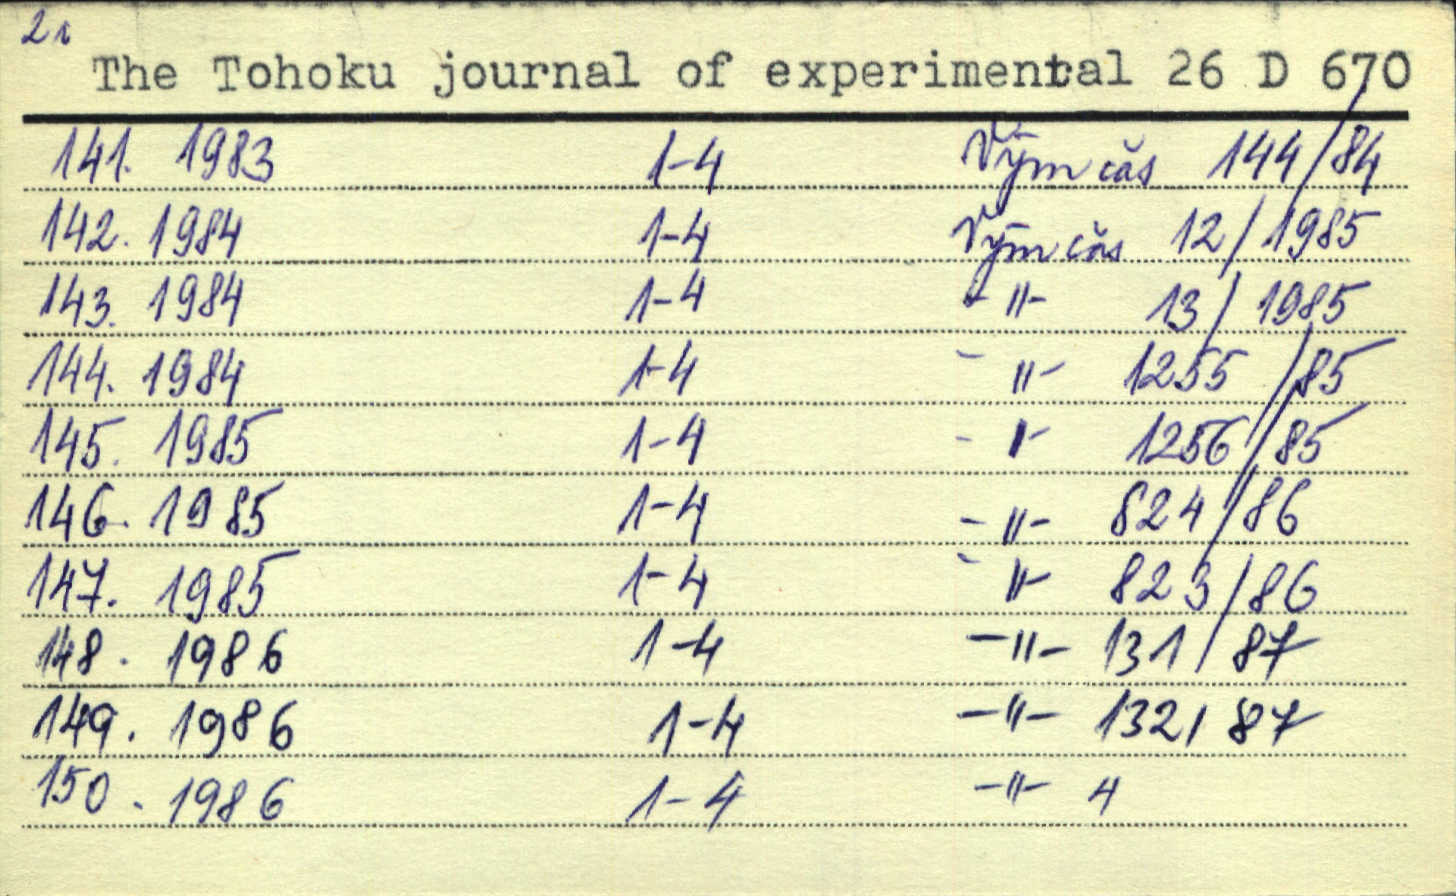 The Tohoku journal of experimental 26 D 670
141. 1983 1-4 Vým čas 144/84
142. 1984 1-4 Vým čas 12/1985
143. 1984 1-4 -"- 13/1985
144. 1984 1-4 -"- 1255/85
145. 1985 1-4 -"- 1256/85
146. 1985 1-4 -"- 824/86
147. 1985 1-4 -"- 823/86
148. 1986 1-4 -"- 131/87
149. 1986 1-4 -"- 132/87
150. 1986 1-4 -"- 4